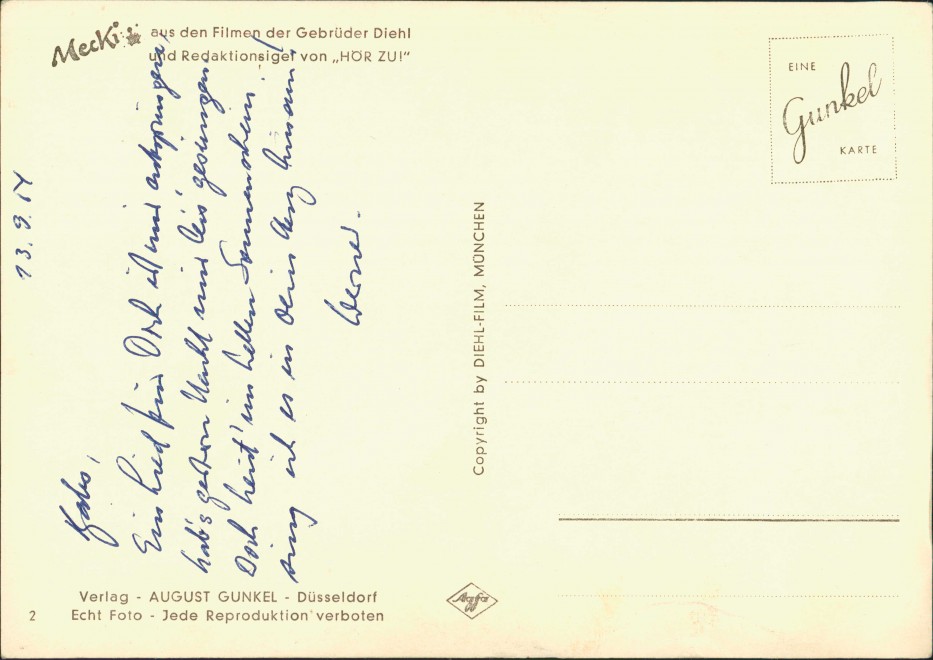 Mecki aus den Filmen der Gebrüder Diehl
und Redaktionsigel von „HÖR ZU!"
EINE
Gunkel
KARTE
13. 9. 54
Ein Lied für Dich ist mir entsprungen,
hab's gestern Nacht mir leis' gesungen.
Doch heut' im hellen Sonnenschein!
sing ich es in Dein Herz hinein!
Werner.
Copyright by DIEHL-FILM, MÜNCHEN
Verlag - AUGUST GUNKEL - Düsseldorf
2 Echt Foto - Jede Reproduktion verboten
Agfa